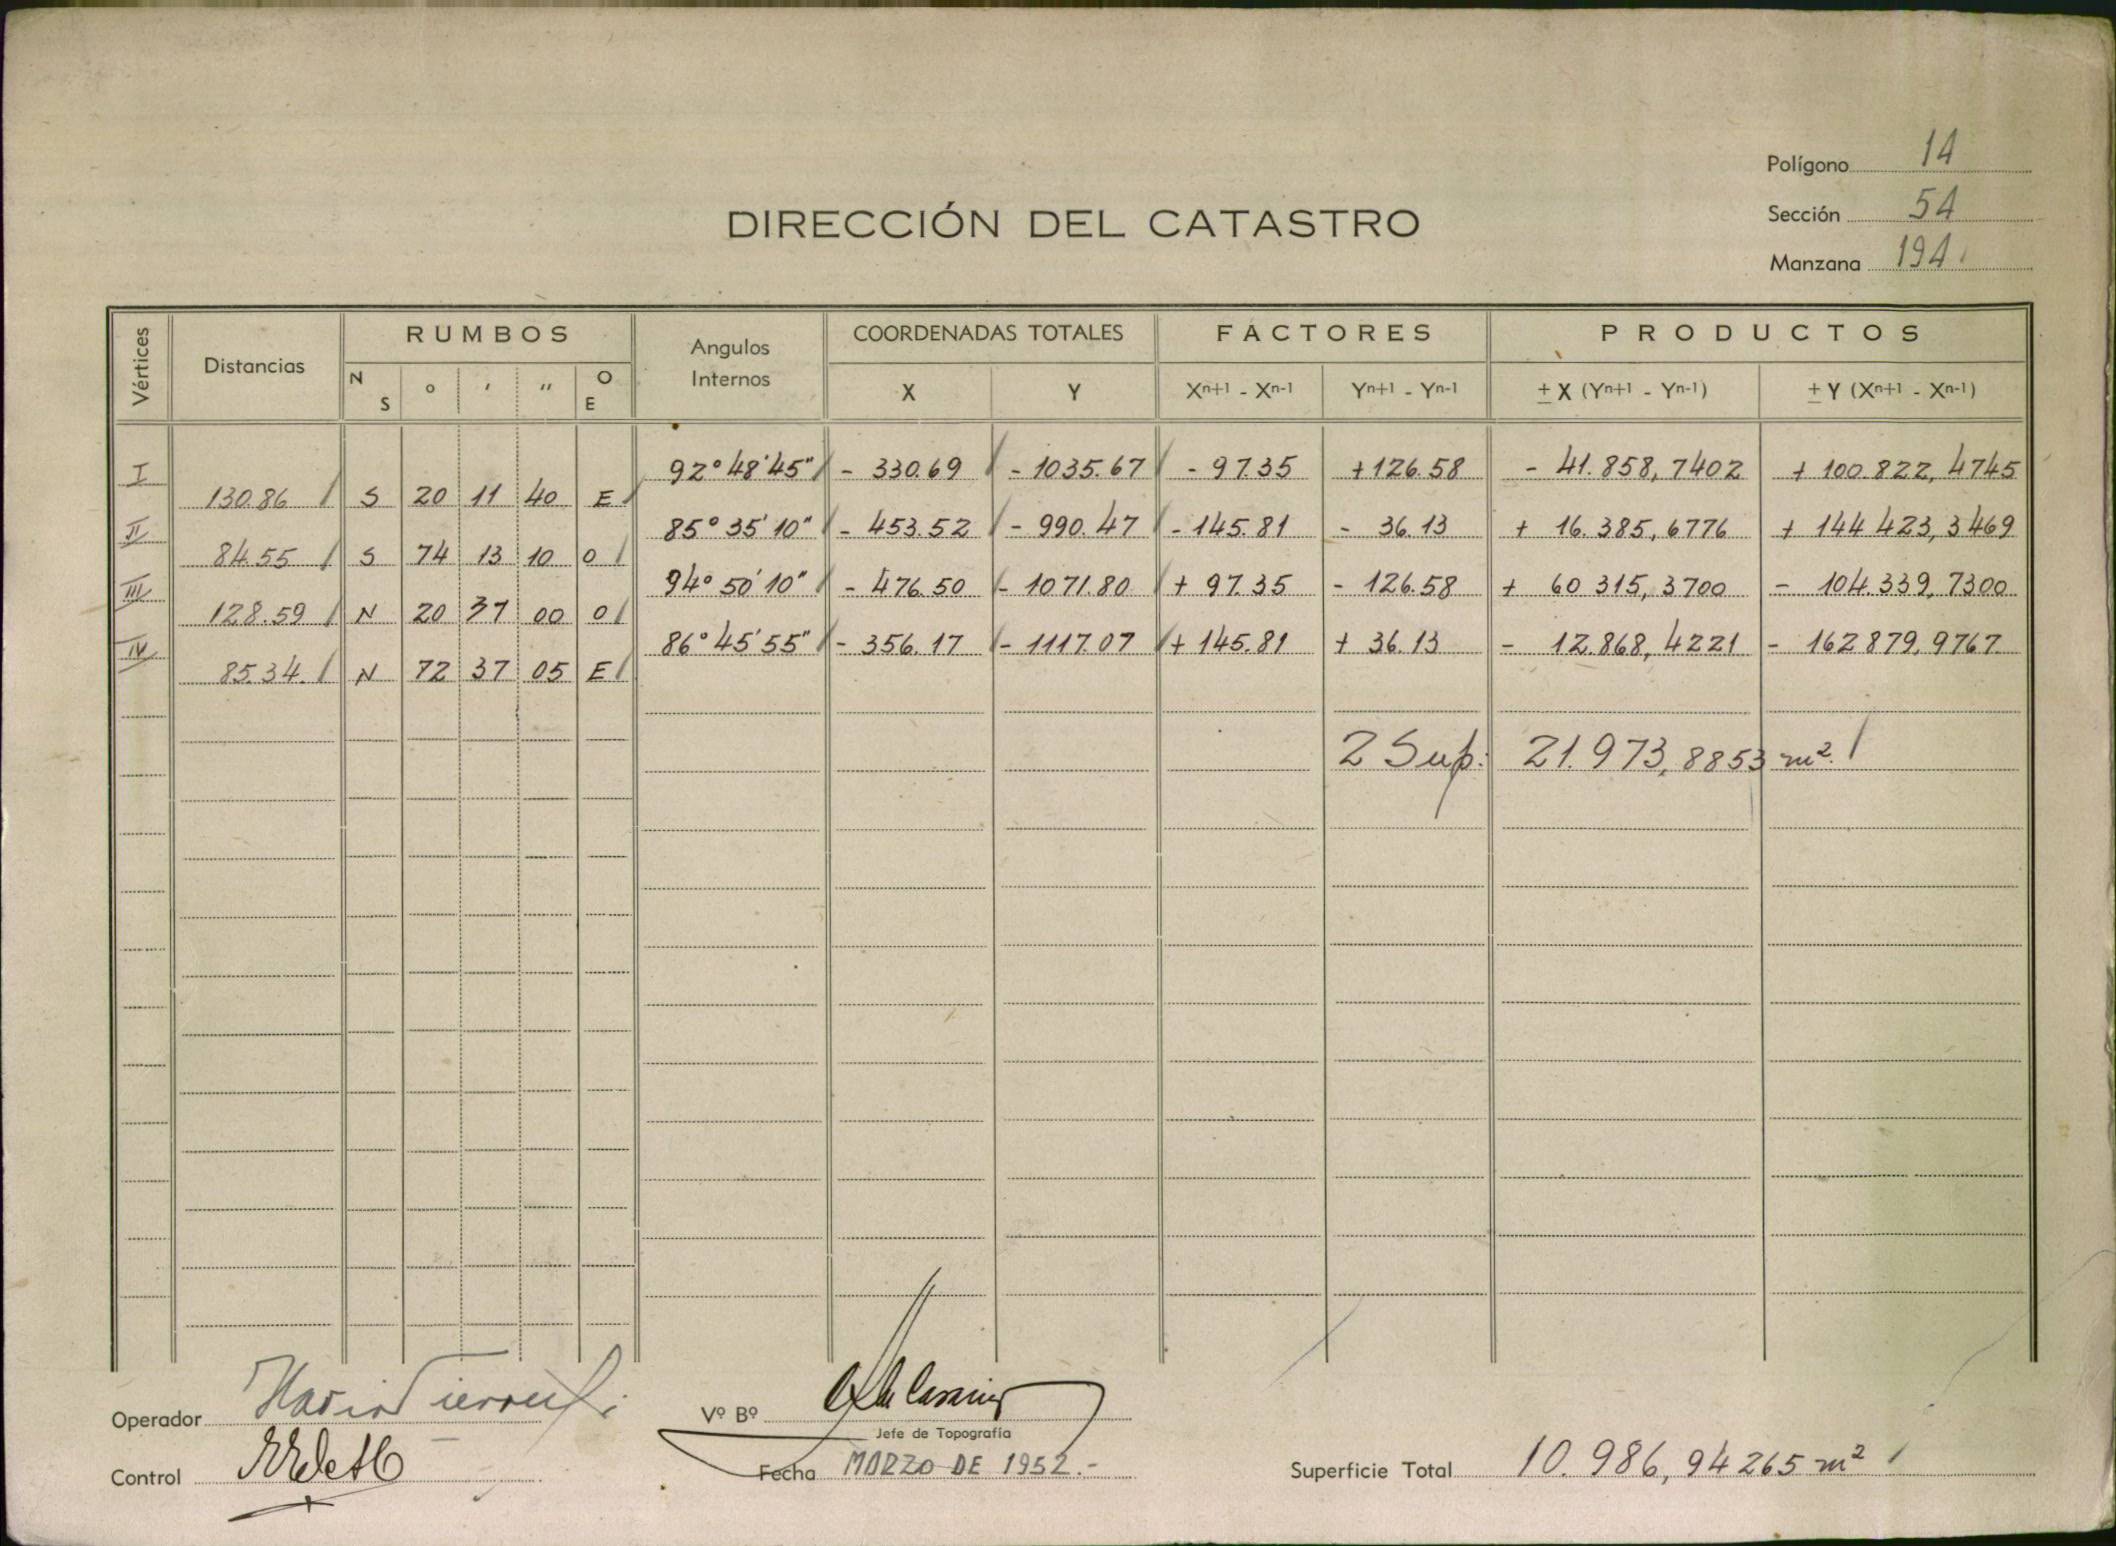 Polígono 14
DIRECCIÓN DEL CATASTRO
Sección 54
Manzana 194
Vértices Distancias RUMBOS Angulos Internos COORDENADAS TOTALES FACTORES PRODUCTOS
N S ° ' '' O E X Y Xn+1 - Xn-1 Yn+1 - Yn-1 ± X (Yn+1 - Yn-1) ± Y (Xn+1 - Xn-1)
I 92° 48' 45" - 330.69 - 1035.67 - 97.35 + 126.58 - 41.858,7402 + 100.822,4745
130.86 S 20 11 40 E
II 85° 35' 10" - 453.52 - 990.47 - 145.81 - 36.13 + 16.385,6776 + 144 423,3469
84.55 S 74 13 10 O
III 94° 50' 10" - 476.50 - 1071.80 + 97.35 - 126.58 + 60 315,3700 - 104.339,7300
128.59 N 20 37 00 O
IV 86° 45' 55" - 356.17 - 1117.07 + 145.81 + 36.13 - 12.868,4221 - 162 879,9767
85.34. N 72 37 05 E
2 Sup: 21.973,8853 m².
Operador
Vº Bº
Jefe de Topografía
Control
Fecha MARZO DE 1952.-
Superficie Total 10.986,94265 m²